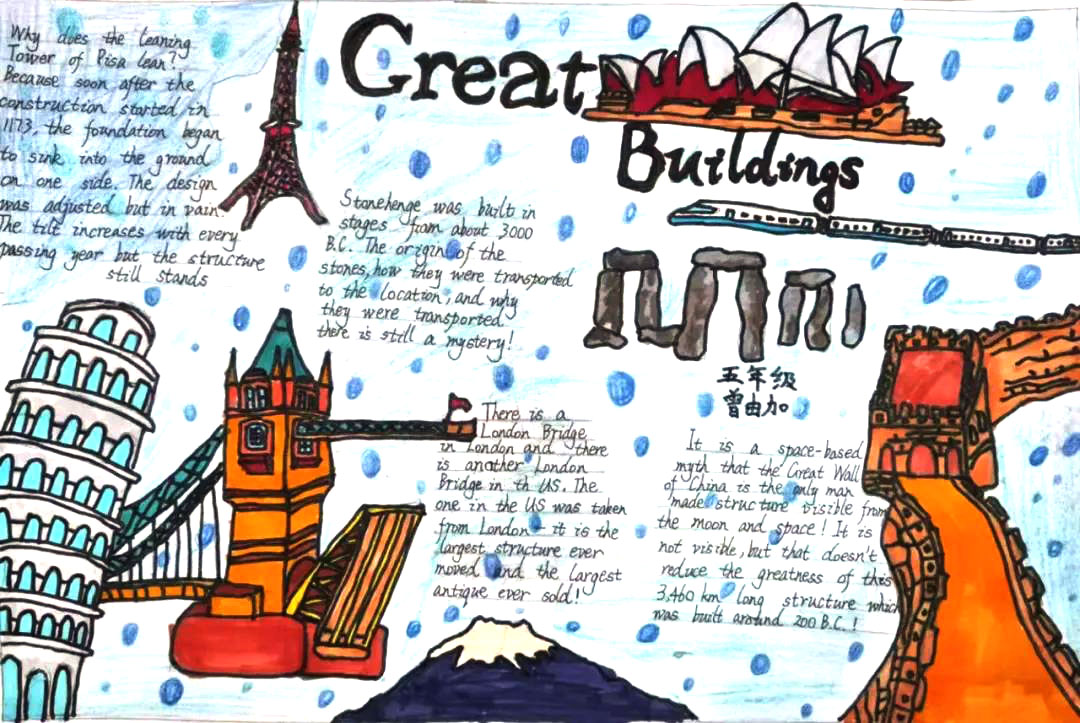 Great
Buildings
Why does the leaning
Tower of Pisa lean?
Because soon after the
construction started in
1173, the foundation began
to sink into the ground
on one side. The design
was adjusted but in vain.
The tilt increases with every
passing year but the structure
still stands
Stonehenge was built in
stages from about 3000
B.C. The origin of the
stones, how they were transported
to the location, and why
they were transported
there is still a mystery!
五年级
曾由加
There is a
London Bridge
in London and there
is another London
Bridge in th US. The
one in the US was taken
from London - it is the
largest structure ever
moved and the largest
antique ever sold!
It is a space-based
myth that the Great Wall
of China is the only man
made structure visible from
the moon and space! It is
not visible, but that doesn't
reduce the greatness of this
3,460 km long structure which
was built around 200 B.C.!